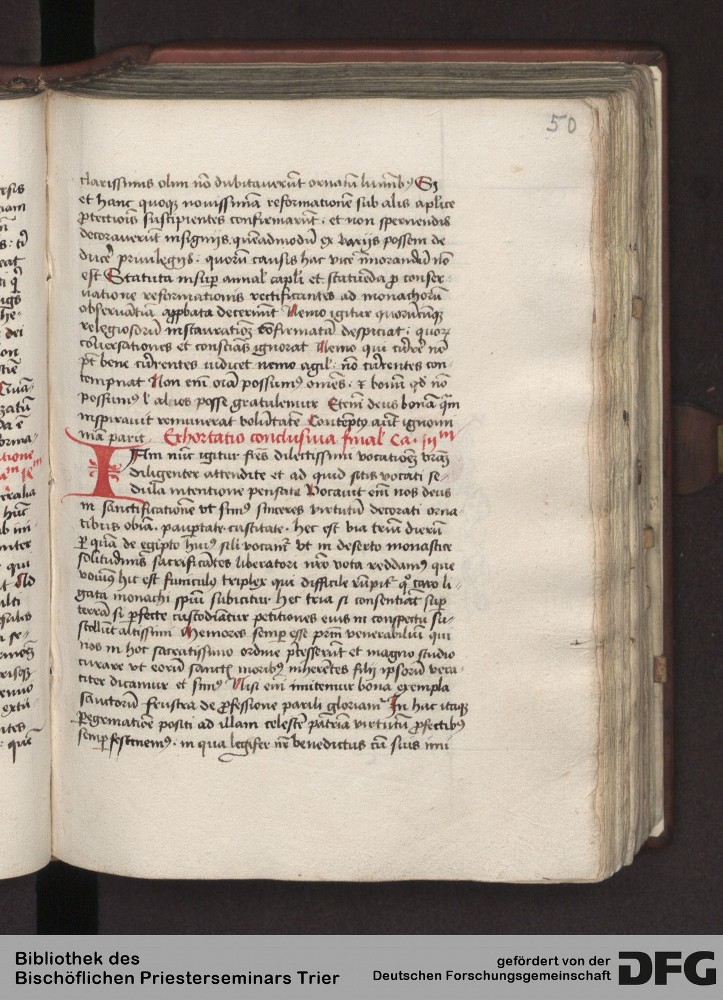 50
clarissimis olim nō dubitaverūt ornam luminib9 Si
et hanc quoqz novissimā reformationē sub alis aplice
ꝓtectiōis suscipientes confirmarūt. et non spernendis
decoraverūt insignijs. quēadmodū ex varijs possem de
ducē privilegijs. quorū causis hac vice īmorandū nō
est Statuta insuꝑ annal capli et statuēda ꝓ conser
vatione reformationis rectificantes ad monachorū
observātiā aꝓbata decernūt Nemo igitur quorūcūqz
religiosorū instauratōꝫ cōfirmatā despiciat. quorū
cōversationes et consciās ignorat Nemo qui currē nō
pt bene currentes iudicet nemo agil. nō currentes con
tempnat Non eni oīa possum9 omēs. et bonū qd nō
possum9 ī alios posse gratulemur Etenī deus bonā quā
inspiravit remunerat volūtatē Contēpto autē ignomi
niam parit. Exhortatio conclusiva final Ca. iiijm
Iam nūc igitur frēs dilectissimi vocationē vrām
diligenter attendite et ad quid sitis vocati se
dula intentione pensate Vocavit eni nos deus
in sanctificatione vt sim9 sinceres virtutū decorati orna
tibus obīa. pauꝑtate. castitate. hec est via triū dierū
ꝑ quā de egipto hui9 sēli vocamr vt in deserto monastice
solitudinis sacrificātes liberatori nrō vota reddam9 que
vovim9 hic est funicul9 triplex qui difficile rūpitr qo caro li
gata monachi spūi subicitur Hec tria si consentiāt suꝑ
terrā si ꝑfecte custodiātur petitiones eius in conspectu su
scōlliūt altissimi Memores semꝑ esse prīm venerabiliū qui
nos in hoc sacratissimo ordine p̄cesserūt et magno studio
curare vt eorū sanctis morib9 inherētes filij ipsorū vera
citer dicamur et sim9 Nisi eni imitemur bona exempla
sanctorū frustra de ꝓfessione parili gloriamr In hac itaqz
ꝑegrinatiōe positi ad illam celestē patriā virtutū ꝓfectib9
semꝑ festinem9. in qua legifer nr benedictus cū suis imi
Bibliothek des
Bischöflichen Priesterseminars Trier
gefördert von der
Deutschen Forschungsgemeinschaft
DFG